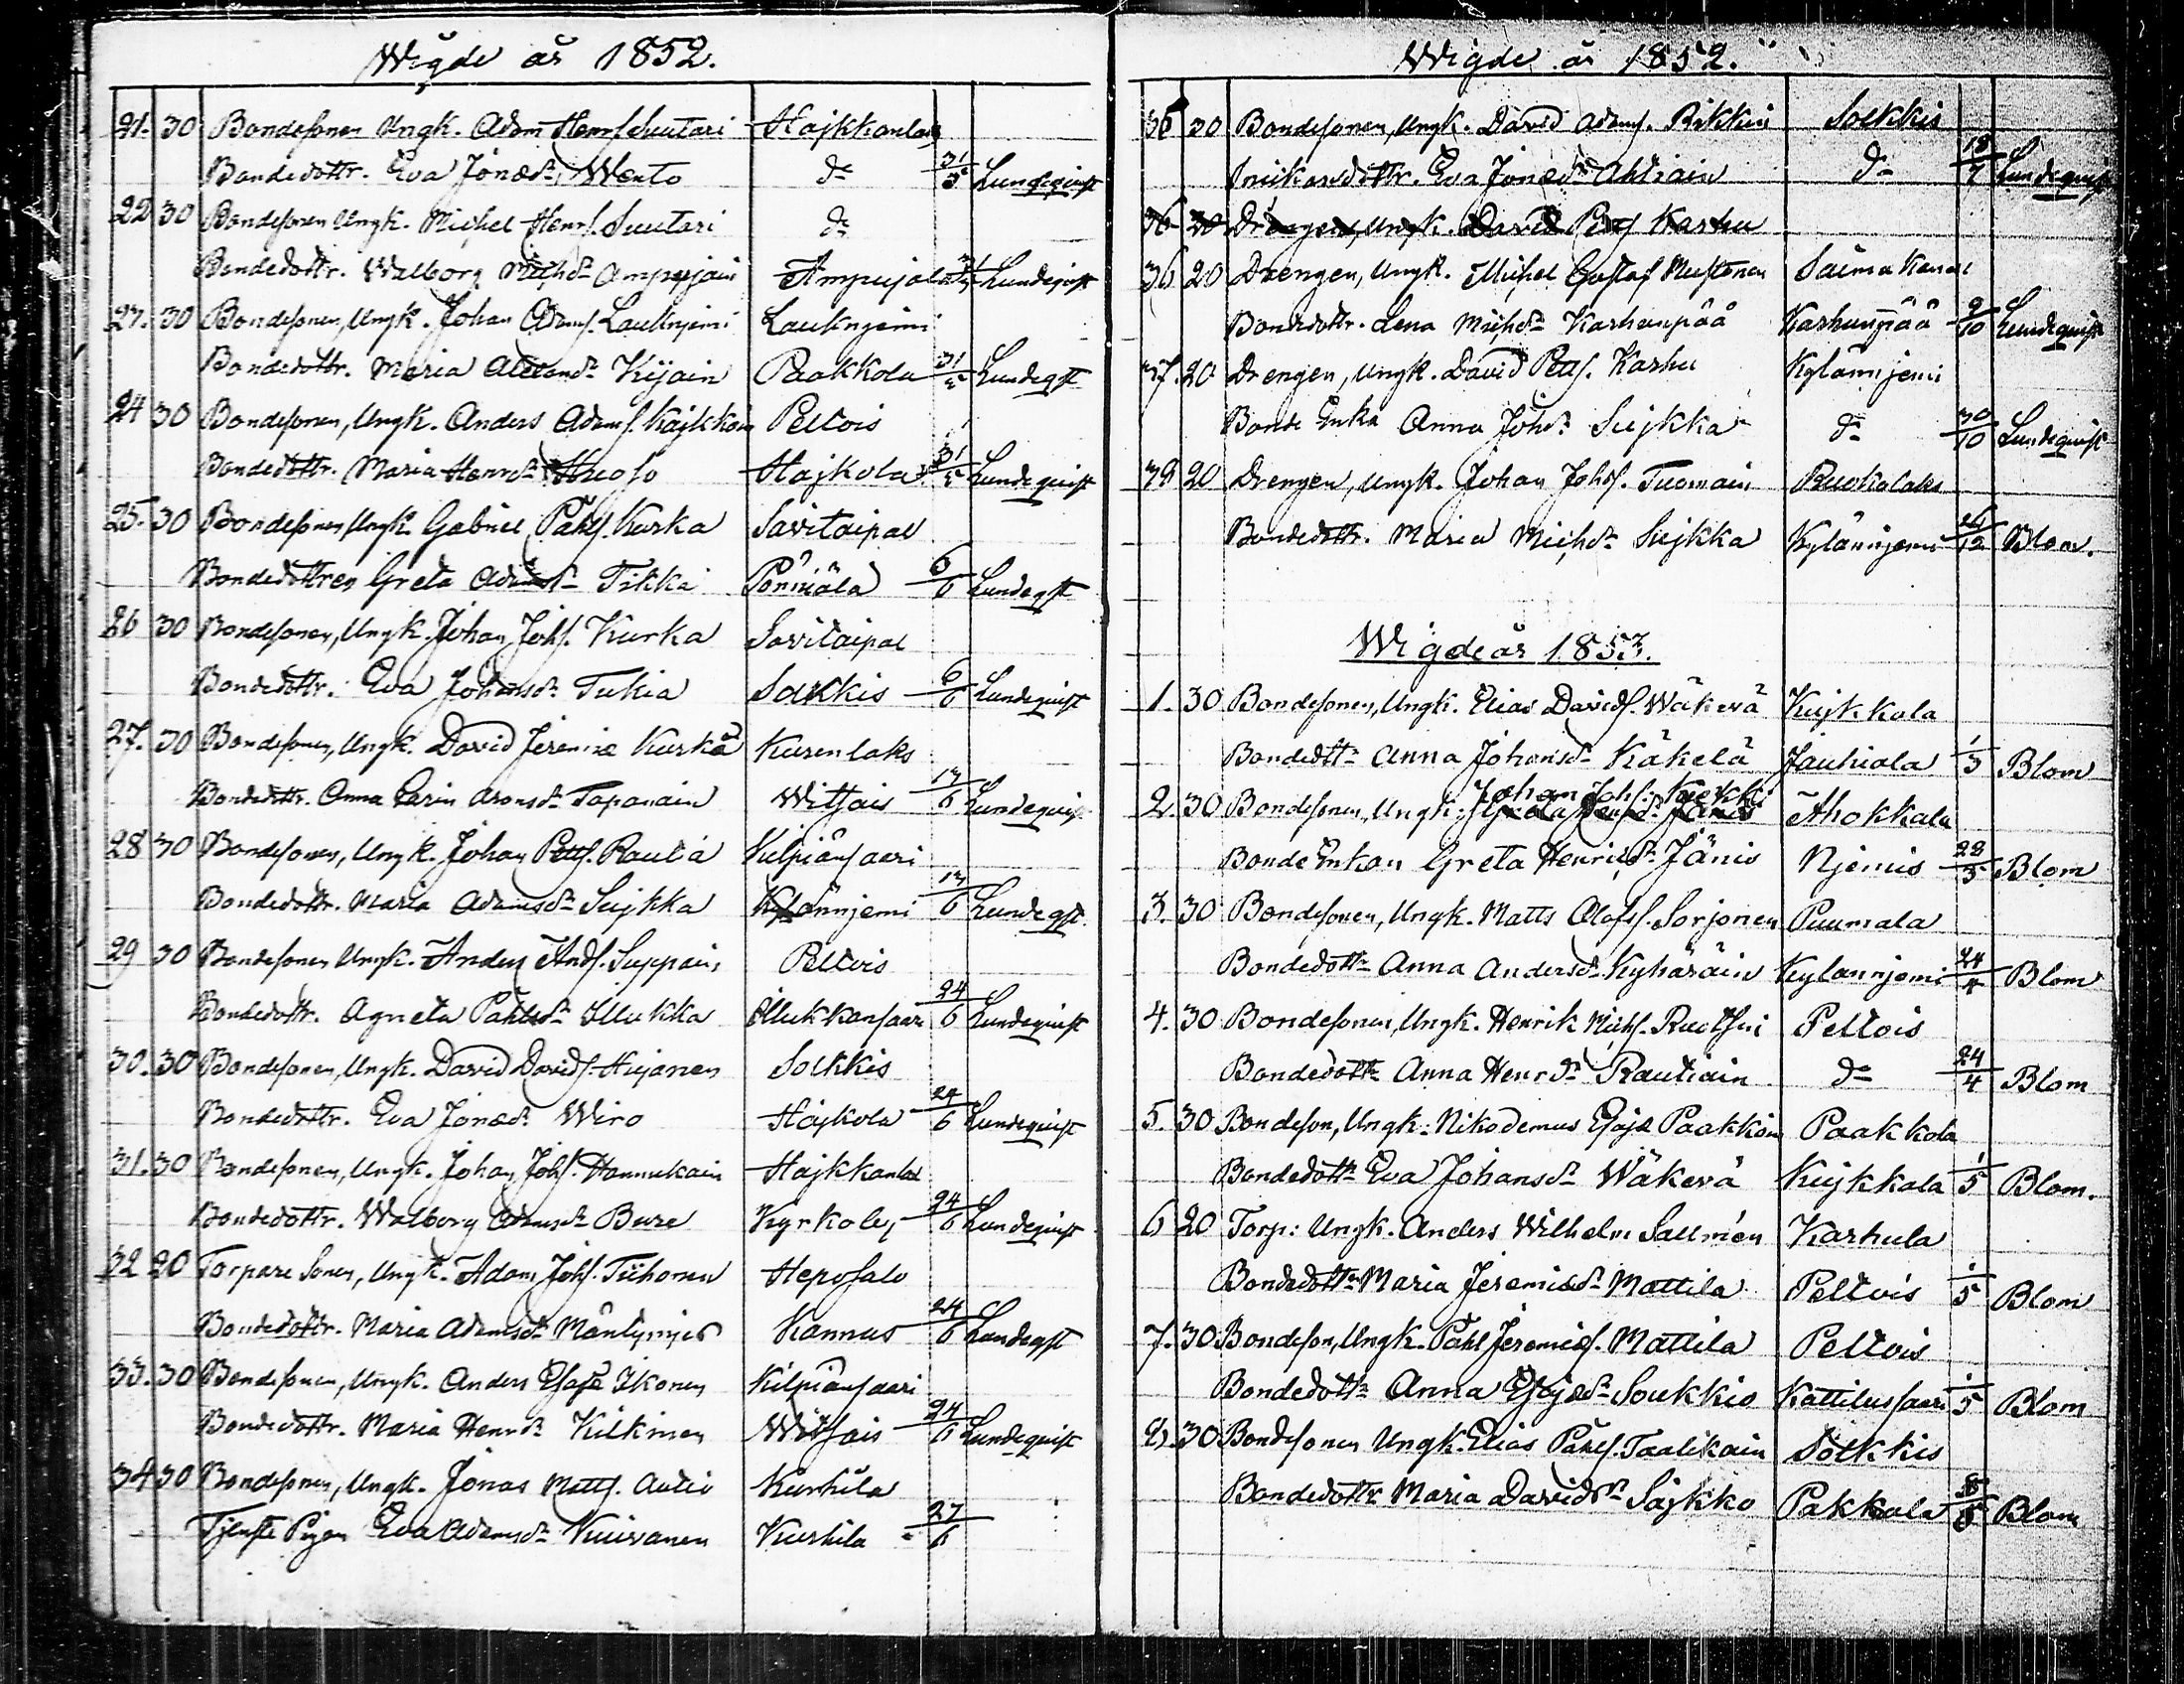 Wigde år 1852.
21. 30 Bondesonen Ungk. Adam Henrs. Suutari Hajkkanlax
Bondedottr. Eva Jonæd:r Wento d:o 31/5 Lundequist
22 30 Bondesonen Ungk. Michel Henrs. Suutari d:o
Bondedottr. Walborg Michd:r Ampujain Ampujala 31/5 Lundequist
23. 30 Bondesonen, Ungk. Johan Adams. Lauknjemi Lauknjemi
Bondedottr. Maria Alexand:r Kijain Paakkola 31/5 Lundeqst
24 30 Bondesonen, Ungk. Anders Adams. Kajkkoin Peltois
Bondedottr. Maria Henrd:r Huoso Hajkola 31/5 Lundequist
25. 30 Bondesonen Ungk. Gabriel Påhls. Kurka Savitaipal
Bondedottren Greta Adamsd:r Tikka Pönniälä 6/6 Lundeqst
26 30 Bondesonen, Ungk. Johan Johs. Kurka Savitaipal
Bondedottr. Eva Johansd:r Tukia Solkkis 6/6 Lundequist
27. 30 Bondesonen, Ungk. David Jeremiæ Kurka Kurenlaks
Bondedottr. Anna Carin Aronsd:r Tapanain Witsais 13/6 Lundequist
28 30 Bondesonen, Ungk. Johan Petts. Rautia Kilpiänsaari
Bondedottr. Maria Adamsd:r Sujkka Kylännjemi 13/6 Lundeqst
29 30 Bondesonen Ungk. Anders Ands. Suppain Peltois
Bondedottr. Agneta Påhlsd:r Illukka Illukkansaari 24/6 Lundequist
30. 30 Bondesonen, Ungk. David Davids. Hujanen Solkkis
Bondedottr. Eva Jonæd:r Wiro Hajkola 24/6 Lundequist
31. 30 Bondesonen, Ungk. Johan Johs. Hannukain Hajkkanlax
Bondedottr. Walborg Adamsd:r Bure Kyrkoby 24/6 Lundequist
32 20 Torpare Sonen, Ungk. Adam Johs. Tiihonen Heposalo
Bondedottr. Maria Adamsd:r Mäntynjes Kannus 24/6 Lundeqst
33. 30 Bondesonen, Ungk. Anders Esajæ Ikonen Kilpiänsaari
Bondedottr. Maria Henrd:r Kilkinen Witsais 24/6 Lundequist
34 30 Bondesonen, Ungk. Jonas Matts. Autio Kurhila
Tjenste Pigan Eva Adamsd:r Kuivanen Kurhila 27/6
Wigde år 1852.
35 20 Bondesonen, Ungk. David Adams. Rikkin Solkkis
dottr. Eva Jonæd:r Ahtiain d:o 18/7 Lundequist
36 20 Drengen, Ungk. David Petts Karhu
36 20 Drengen, Ungk. Michel Gustafs Mustonen Saima Kanal
Bondedottr. Lena Michd:r Karhunpää Karhunpää 9/10 Lundequist
37. 20 Drengen, Ungk. David Petts. Karhu Kylännjemi
Bonde Enka Anna Johd:r Sujkka d:o 30/10 Lundequist
38 20 Drengen, Ungk. Johan Johs. Tuomain Ruokolaks
Bondedottr. Maria Michd:r Sujkka Kylännjemi 26/12 Blom.
Wigde år 1853.
1. 30 Bondesonen, Ungk. Elias Davids. Wäkevä Kujkkala
Bondedott:r Anna Johansd:r Käkelä Jauhiala 1/3 Blom
Johan Johs: Kiekki
2. 30 Bondesonen, Ungk: Ahokkala
Bonde Enkan Greta Henricsd:r Jänis Njemis 28/3 Blom
3. 30 Bondesonen, Ungk. Matts Olofss. Sorjonen Puumala
Bondedott:r Anna Andersd:r Kyhäräin Kylännjemi 24/4 Blom
4. 30 Bondesonen, Ungk. Henrik Michs. Ruotsin Peltois
Bondedott:r Anna Henrd:r Rautiain d:o 24/4 Blom
5. 30 Bondeson, Ungk. Nikodemus Esajæ Paakkoin Paakkola
Bondedott:r Eva Johansd:r Wäkevä Kujkkala 1/5 Blom.
6 20 Torp: Ungk. Anders Wilhelm Sallmén Karhula
Bondedott:r Maria Jeremiæd:r Mattila Peltois 1/5 Blom
7. 30 Bondeson, Ungk. Påhl Jeremiæs. Mattila Peltois
Bondedott:r Anna Esajæd:r Soukkio Kattilussaari 1/5 Blom
8. 30 Bondesonen Ungk. Elias Påhls. Taalikain Solkkis
Bondedottr Maria Davidsd:r Sajkko Pakkola 8/5 Blom